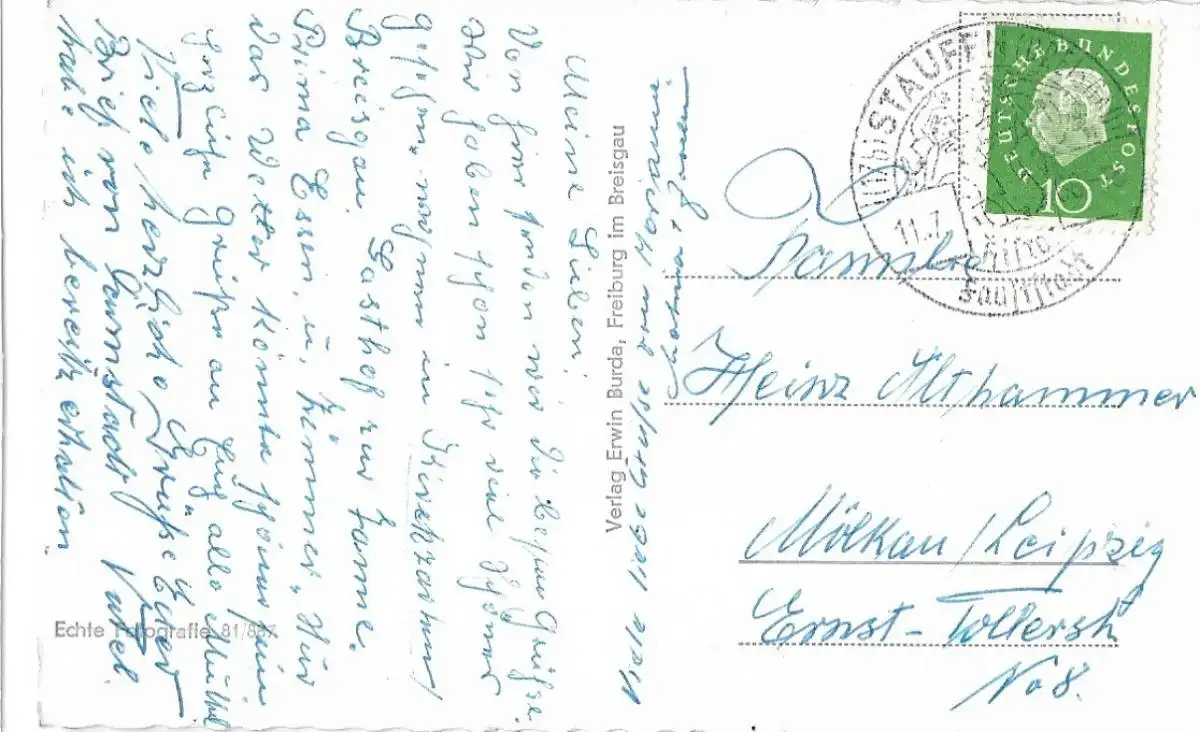 Meine Lieben!
Von hier senden wir die besten Grüße.
Wir haben schon sehr viel Schönes
gesehen, wohnen in Kirchzarten/
Breisgau. Gasthof zur Tanne.
Prima Essen u. Zimmer. Nur
das Wetter könnte schöner sein
Herzliche Grüße an Euch alle
Viele herzliche Grüße Euer
Brief von Darmstadt
habe ich bereits erhalten.
Viele liebe Grüße von
Verlag Erwin Burda, Freiburg im Breisgau
Echte Fotografie 81/887
DEUTSCHE BUNDESPOST
10
STAUFEN
11.7.
Fauststadt
Familie
Heinz Althammer
Mölkau/Leipzig
Ernst-Tollerstr
No 8.